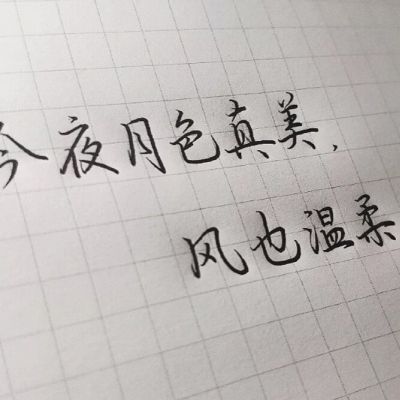 今夜月色真美,
风也温柔